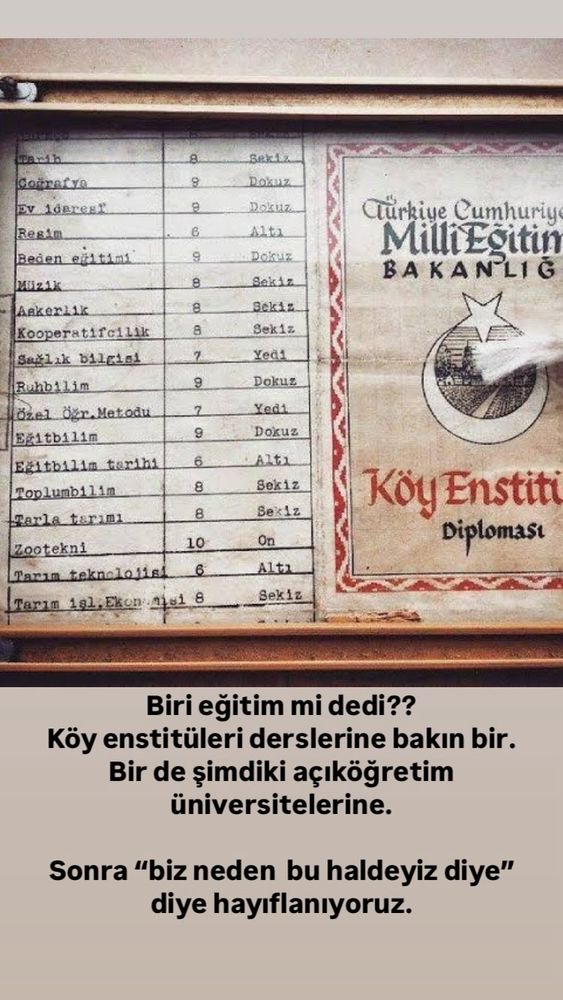 Tarih 8 Sekiz
Coğrafya 9 Dokuz
Ev idaresi 9 Dokuz
Resim 6 Altı
Beden eğitimi 9 Dokuz
Müzik 8 Sekiz
Askerlik 8 Sekiz
Kooperatifcilik 8 Sekiz
Sağlık bilgisi 7 Yedi
Ruhbilim 9 Dokuz
Özel Öğr.Metodu 7 Yedi
Eğitbilim 9 Dokuz
Eğitbilim tarihi 6 Altı
Toplumbilim 8 Sekiz
Tarla tarımı 8 Sekiz
Zootekni 10 On
Tarım teknolojisi 6 Altı
Tarım işl.Ekonomisi 8 Sekiz
Türkiye Cumhuriye
Millî Eğitim
BAKANLIĞ
Köy Enstitü
Diploması
Biri eğitim mi dedi??
Köy enstitüleri derslerine bakın bir.
Bir de şimdiki açıköğretim
üniversitelerine.
Sonra “biz neden bu haldeyiz diye”
diye hayıflanıyoruz.